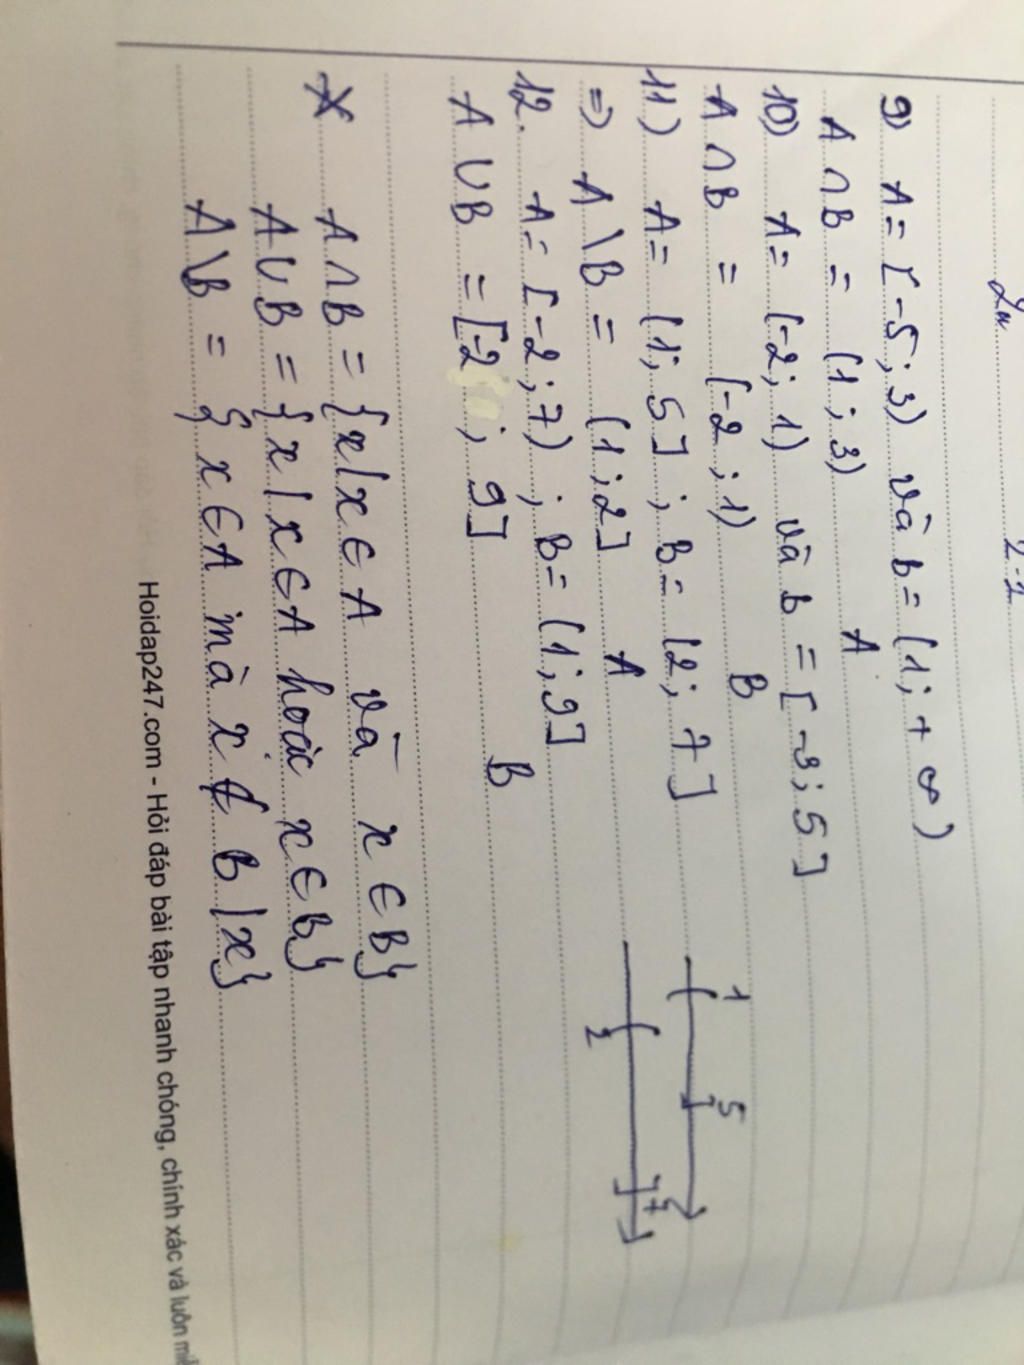 9) A = [-5; 3) và b = (1; + ∞)
A ∩ B = (1; 3) A
10) A = (-2; 1) và b = [-3; 5]
A ∩ B = (-2; 1) B
11) A = (1; 5] ; B = (2; 7]
=> A \ B = (1; 2] A
12. A = [-2; 7) ; B = (1; 9]
A ∪ B = [-2 ; 9] B
1 5
2 7
* A ∩ B = {x/x ∈ A và x ∈ B}
A ∪ B = {x / x ∈ A hoặc x ∈ B}
A \ B = { x ∈ A mà x ∉ B / x}
Hoidap247.com - Hỏi đáp bài tập nhanh chóng, chính xác và luôn